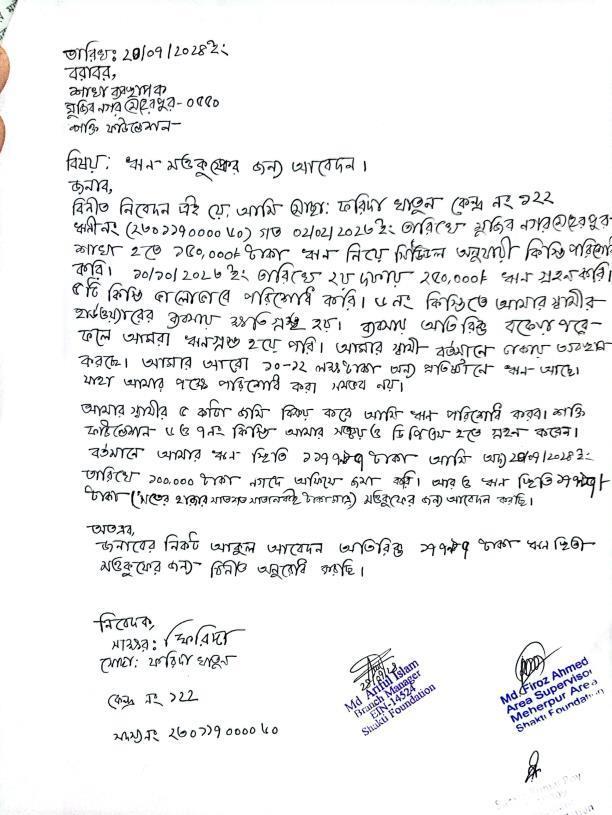 তারিখ: 20/09/2028 ইং
বরাবর,
শাখা ব্যবস্থাপক
মুজিব নগর মেহেরপুর- ০৫৫০
শক্তি ফাউন্ডেশন
বিষয়: ঋন মওকুফের জন্য আবেদন।
জনাব,
বিনীত নিবেদন এই যে, আমি মোছা: ফরিদা খাতুন কেন্দ্র নং ১২২
গত ০২/০২/২০২৩ ইং তারিখে মুজিব নগর মেহেরপুর-
শাখা হতে ১৫০,০০০/- টাকা ঋন নিয়ে সিডিউল অনুযায়ী কিস্তি পরিশোধ
করি। ১০/১০/২০২৩ ইং তারিখে ২য় দফায় ২৫০,০০০/- ঋন গ্রহন করি।
৫টি কিস্তি ভালোভাবে পরিশোধ করি। ৬ নং কিস্তিতে আমার স্বামীর
ব্যবসায় ক্ষতিগ্রস্থ হয়। ব্যবসায় অতিরিক্ত বকেয়া পরে
ফলে আমরা ঋনগ্রস্থ হয়ে পরি। আমার স্বামী বর্তমানে ঢাকায় অবস্থান
করছে। আমার আরো ১০-১২ লক্ষ টাকা অন্য প্রতিষ্ঠানে ঋন আছে।
যাহা আমার পক্ষে পরিশোধ করা সম্ভব নয়।
আমার স্বামীর ৫ কাঠা জমি বিক্রয় করে আমি ঋন পরিশোধ করব। শক্তি
ফাউন্ডেশন ৬ ও ৭ নং কিস্তি আমার সঞ্চয় ও ডিপিএস হতে গ্রহন করেন।
বর্তমানে আমার ঋন স্থিতি টাকা আমি অদ্য 20/09/2028 ইং
তারিখে ১০০,০০০ টাকা নগদে অফিসে জমা করি। আর ও ঋন স্থিতি
টাকা মওকুফের জন্য আবেদন করছি।
অতএব,
জনাবের নিকট আকুল আবেদন অতিরিক্ত টাকা ঋন স্থিতি
মওকুফের জন্য বিনীত অনুরোধ করছি।
নিবেদক,
সাক্ষর: ফরিদা
মোছা: ফরিদা খাতুন
কেন্দ্র নং ১২২
সদস্য নং ২৩০১১৭০০০০৬০
Md Ariful Islam
Branch Manager
EIN-14524
Shakti Foundation
Md. Firoz Ahmed
Area Supervisor
Meherpur Area
Shakti Foundation